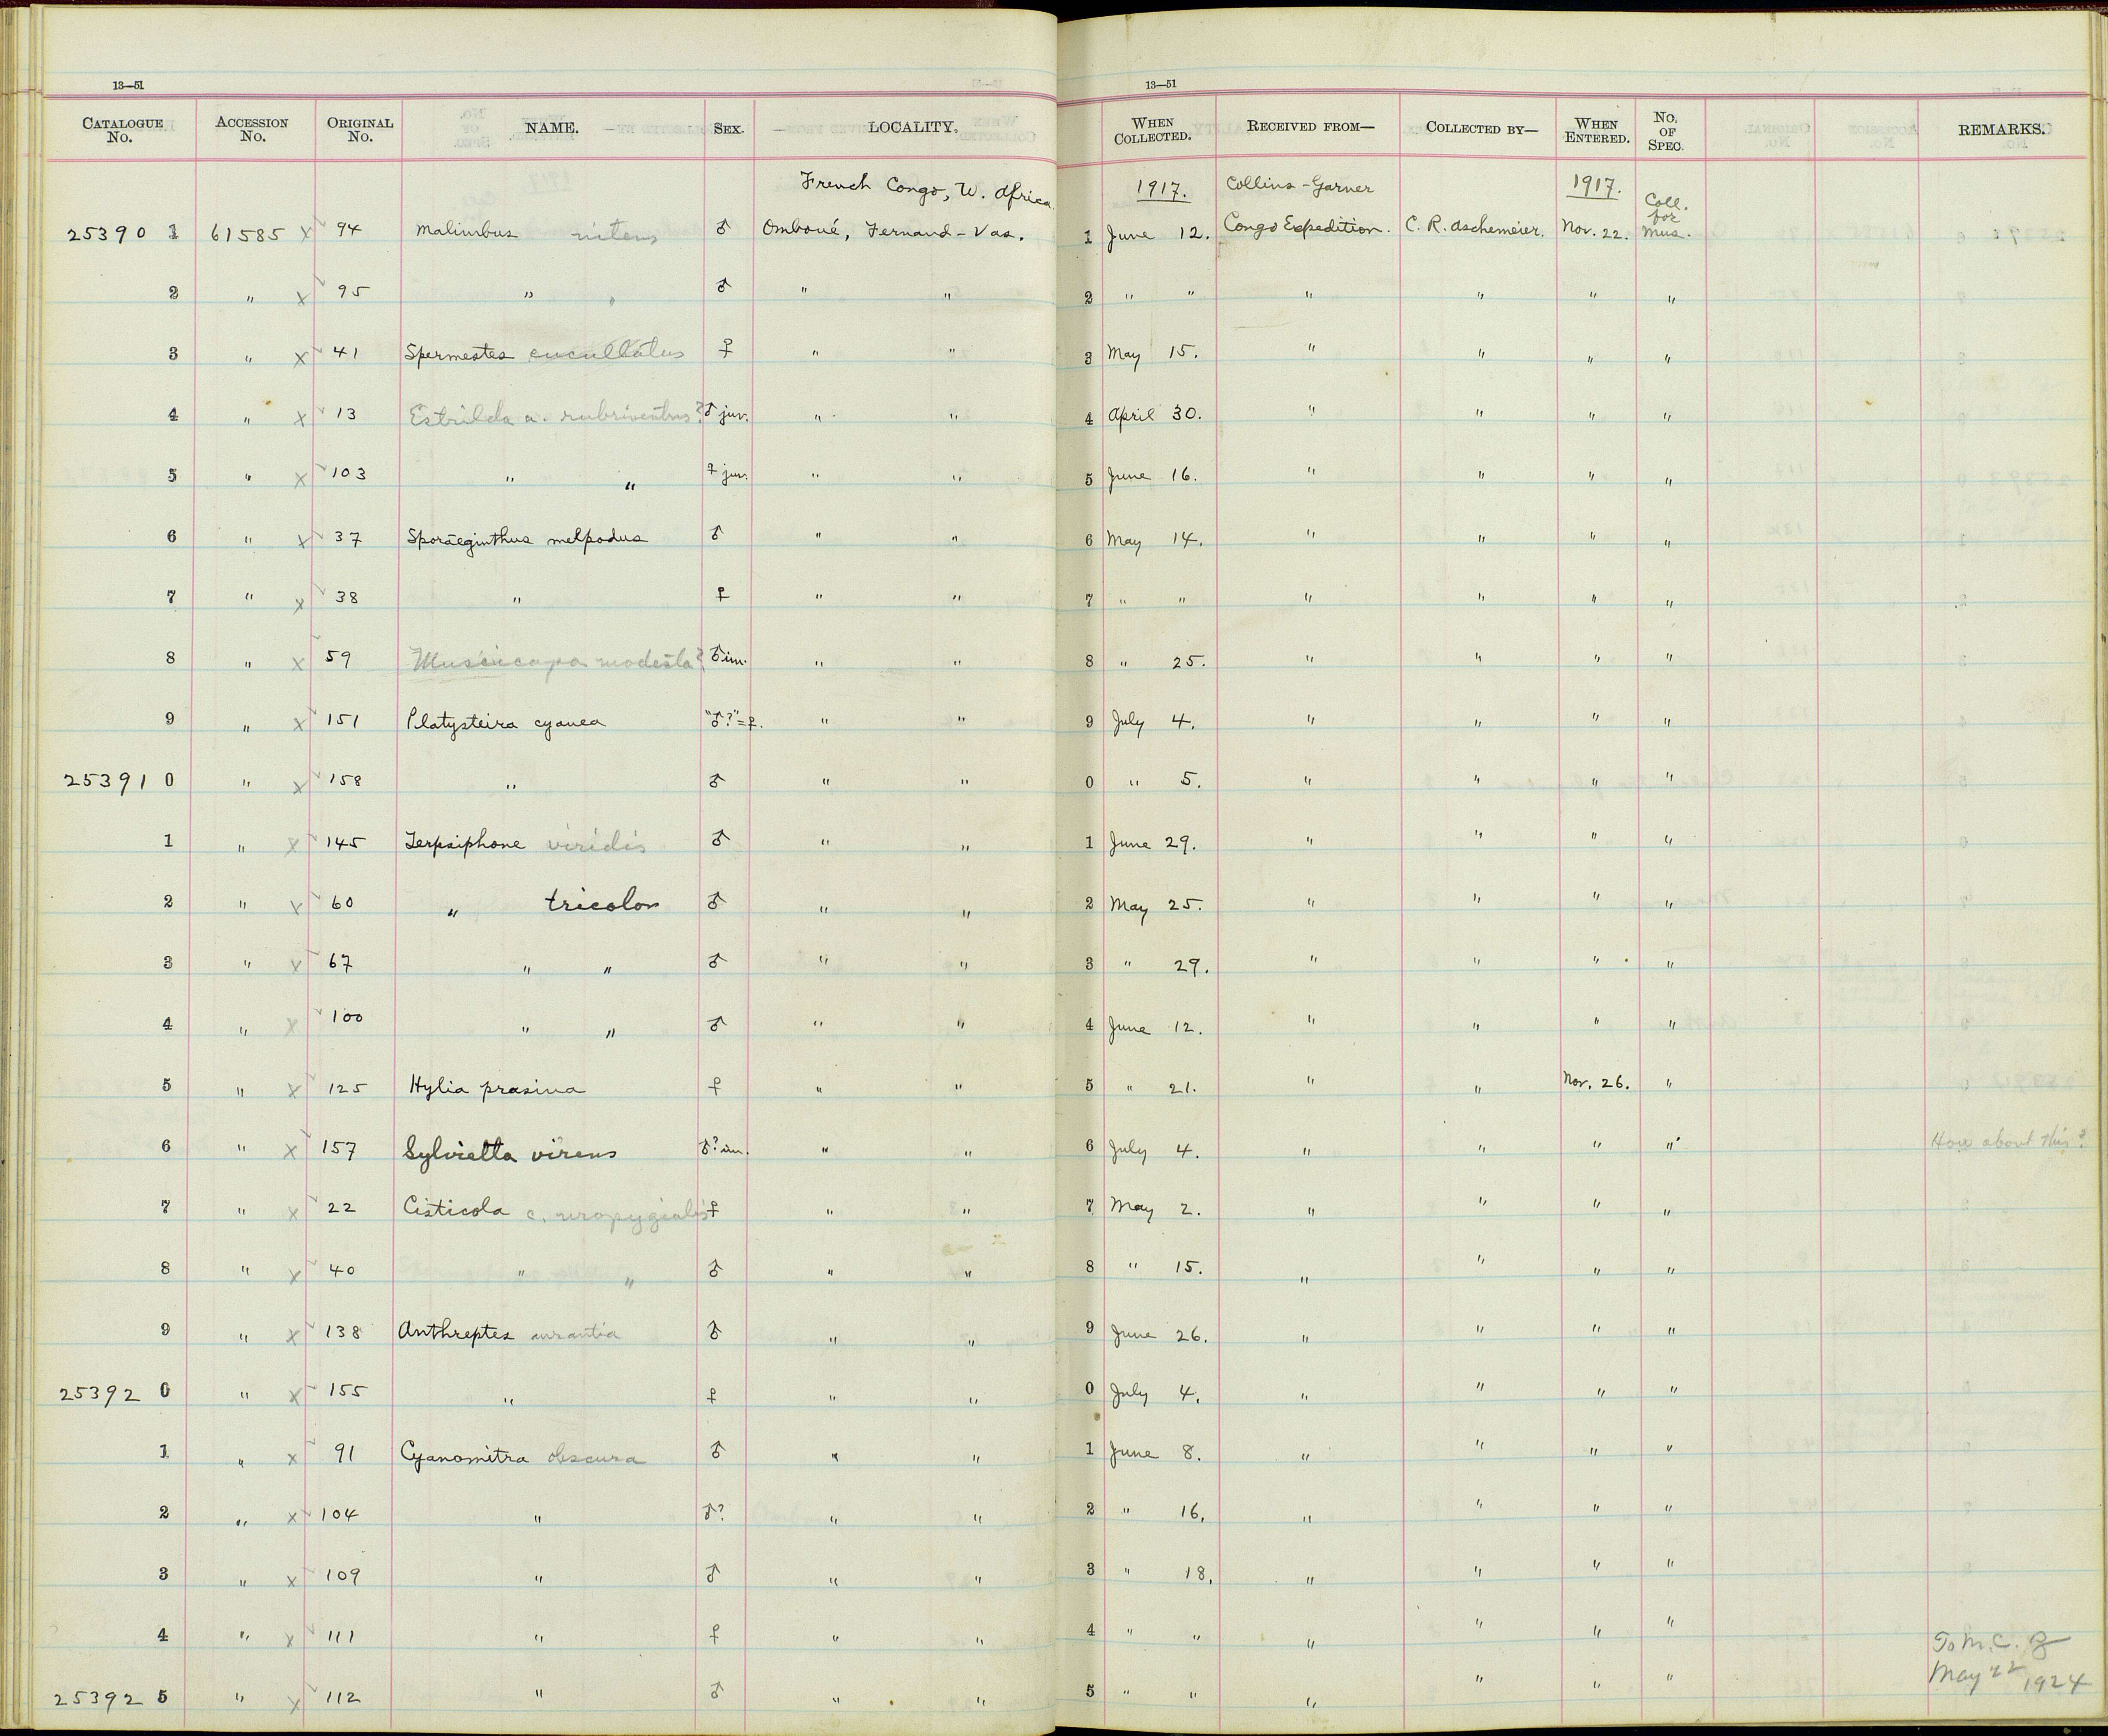 13—51
13—51
CATALOGUE No. ACCESSION No. ORIGINAL No. NAME. SEX. LOCALITY. WHEN COLLECTED. RECEIVED FROM— COLLECTED BY— WHEN ENTERED. No. OF SPEC. REMARKS.
French Congo, W. Africa 1917. Collins-Garner 1917. Coll. for
25390 1 61585 x ✓ 94 Malimbus nitens ♂ Omboué, Fernand-Vas. 1 June 12. Congo Expedition. C. R. Aschemeier. Nov. 22. Mus.
2 " x ✓ 95 " " ♂ " " 2 " " " " " "
3 " x ✓ 41 Spermestes cucullatus ♀ " " 3 May 15. " " " "
4 " x ✓ 13 Estrilda a. rubriventris? ♂ juv. " " 4 April 30. " " " "
5 " x ✓ 103 " " ♀ juv. " " 5 June 16. " " " "
6 " x ✓ 37 Sporaeginthus melpodus ♂ " " 6 May 14. " " " "
7 " x ✓ 38 " ♀ " " 7 " " " " " "
8 " x ✓ 59 Muscicapa modesta? ♂ im. " " 8 " 25. " " " "
9 " x ✓ 151 Platysteira cyanea "♂?"=♀. " " 9 July 4. " " " "
25391 0 " x ✓ 158 " ♂ " " 0 " 5. " " " "
1 " x ✓ 145 Terpsiphone viridis ♂ " " 1 June 29. " " " "
2 " x ✓ 60 " tricolor ♂ " " 2 May 25. " " " "
3 " x ✓ 67 " " ♂ " " 3 " 29. " " " "
4 " x ✓ 100 " " ♂ " " 4 June 12. " " " "
5 " x ✓ 125 Hylia prasina ♀ " " 5 " 21. " " Nov. 26. "
6 " x ✓ 157 Sylvietta virens ♂? im. " " 6 July 4. " " " " How about this?
7 " x ✓ 22 Cisticola c. uropygialis ♀ " " 7 May 2. " " " "
8 " x ✓ 40 " " ♂ " " 8 " 15. " " " "
9 " x ✓ 138 Anthreptes aurantia ♂ " " 9 June 26. " " " "
25392 0 " x ✓ 155 " ♀ " " 0 July 4. " " " "
1 " x ✓ 91 Cyanomitra obscura ♂ " " 1 June 8. " " " "
2 " x ✓ 104 " ♂? " " 2 " 16. " " " "
3 " x ✓ 109 " ♂ " " 3 " 18. " " " "
4 " x ✓ 111 " ♀ " " 4 " " " " " " To M.C.Z
25392 5 " x ✓ 112 " ♂ " " 5 " " " " " " May 22 1924